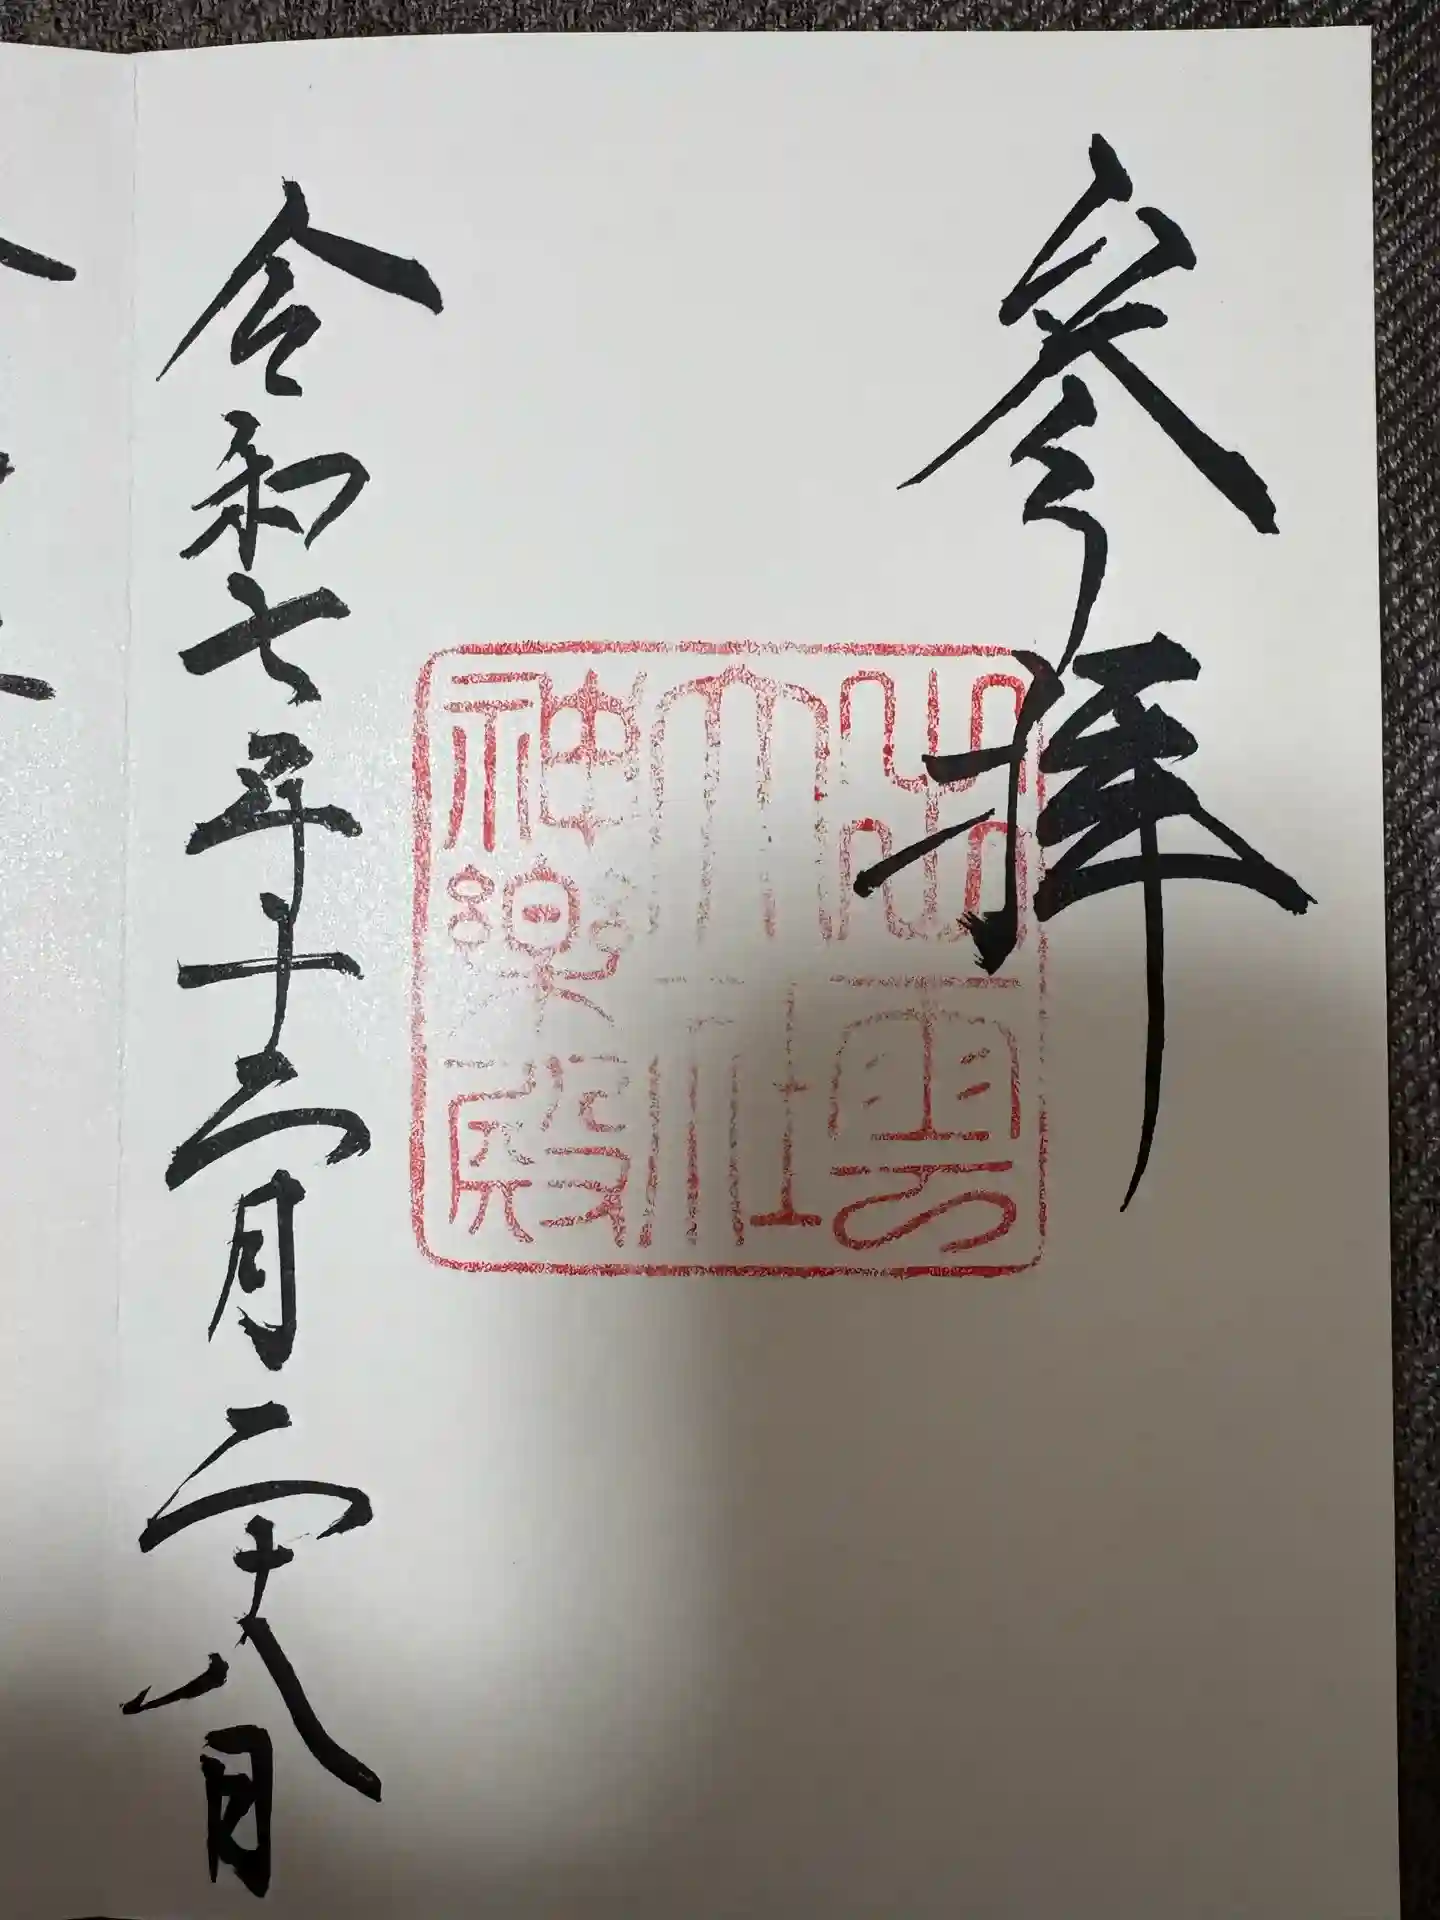 参拝
出雲
大社
神楽殿
令和七年十二月二十八日